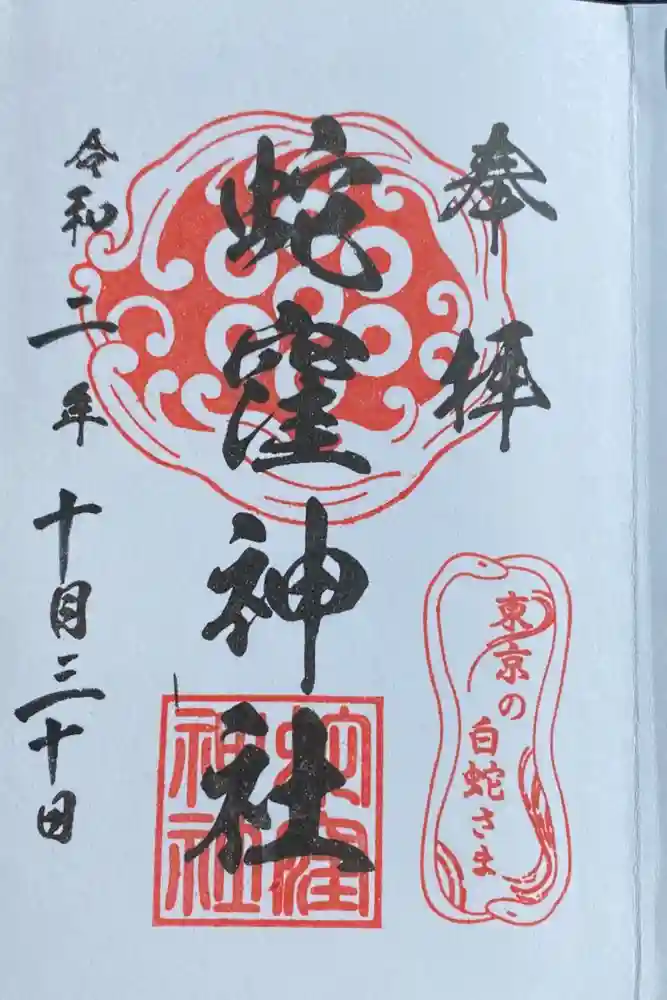 奉拝
蛇窪神社
令和二年十月三十日
東京の
白蛇さま
蛇窪
神社